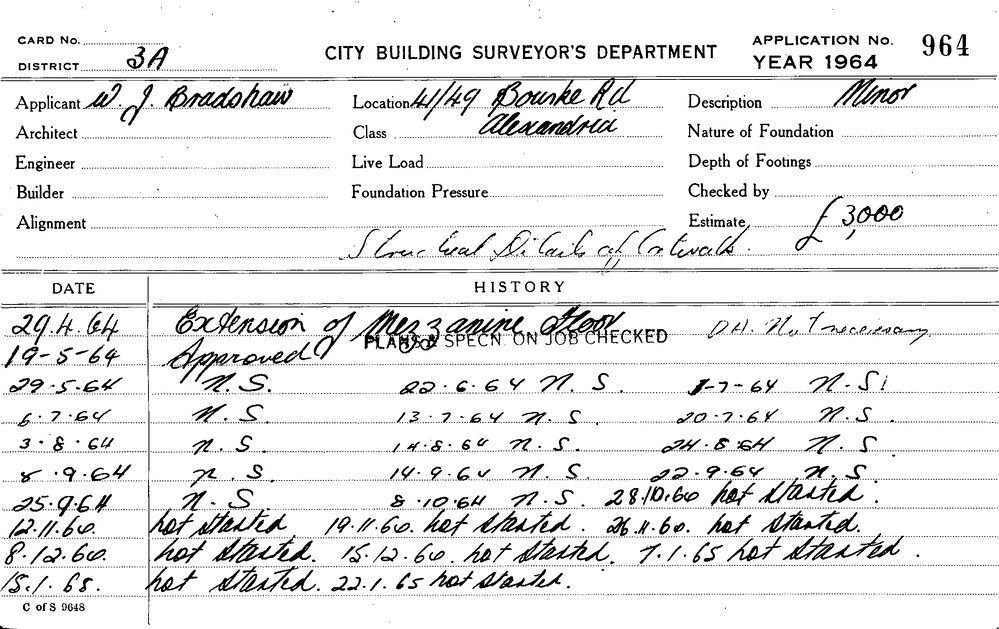 CARD No.
DISTRICT 3A
CITY BUILDING SURVEYOR'S DEPARTMENT
APPLICATION No. 964
YEAR 1964
Applicant W. J. Bradshaw
Location 41/49 Bourke Rd
Alexandria
Description Minor
Architect
Class
Nature of Foundation
Engineer
Live Load
Depth of Footings
Builder
Foundation Pressure
Checked by
Alignment
Estimate £3,000
Structural Details of
DATE HISTORY
29.4.64 Extension of Mezzanine floor D.H. Not necessary.
PLANS & SPECN. ON JOB CHECKED
19-5-64 Approved
29.5.64 N.S. 22.6.64 N.S. 1-7-64 N.S.
6.7.64 N.S. 13.7.64 N.S. 20.7.64 N.S.
3.8.64 N.S. 14.8.64 N.S. 24.8.64 N.S.
8.9.64 N.S. 14.9.64 N.S. 22.9.64 N.S.
25.9.64 N.S 8.10.64 N.S. 28.10.60 not started.
12.11.60. not started 19.11.60. not started. 26.11.60. not started.
8.12.60. not started. 15.12.60. not started. 7.1.65 not started.
15.1.65. not started. 22.1.65 not started.
C of S 9648